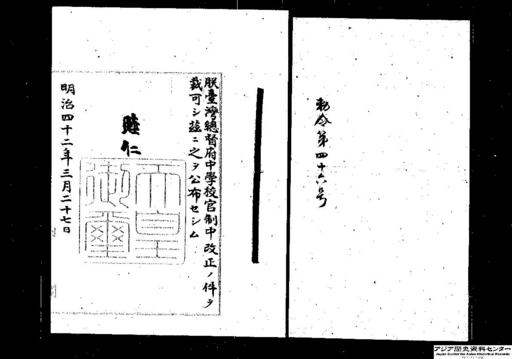 勅令第四十六号
朕臺灣總督府中學校官制中改正ノ件ヲ
裁可シ茲ニ之ヲ公布セシム
睦仁
天皇
御璽
明治四十二年三月二十七日
アジア歴史資料センター
Japan Center for Asian Historical Records